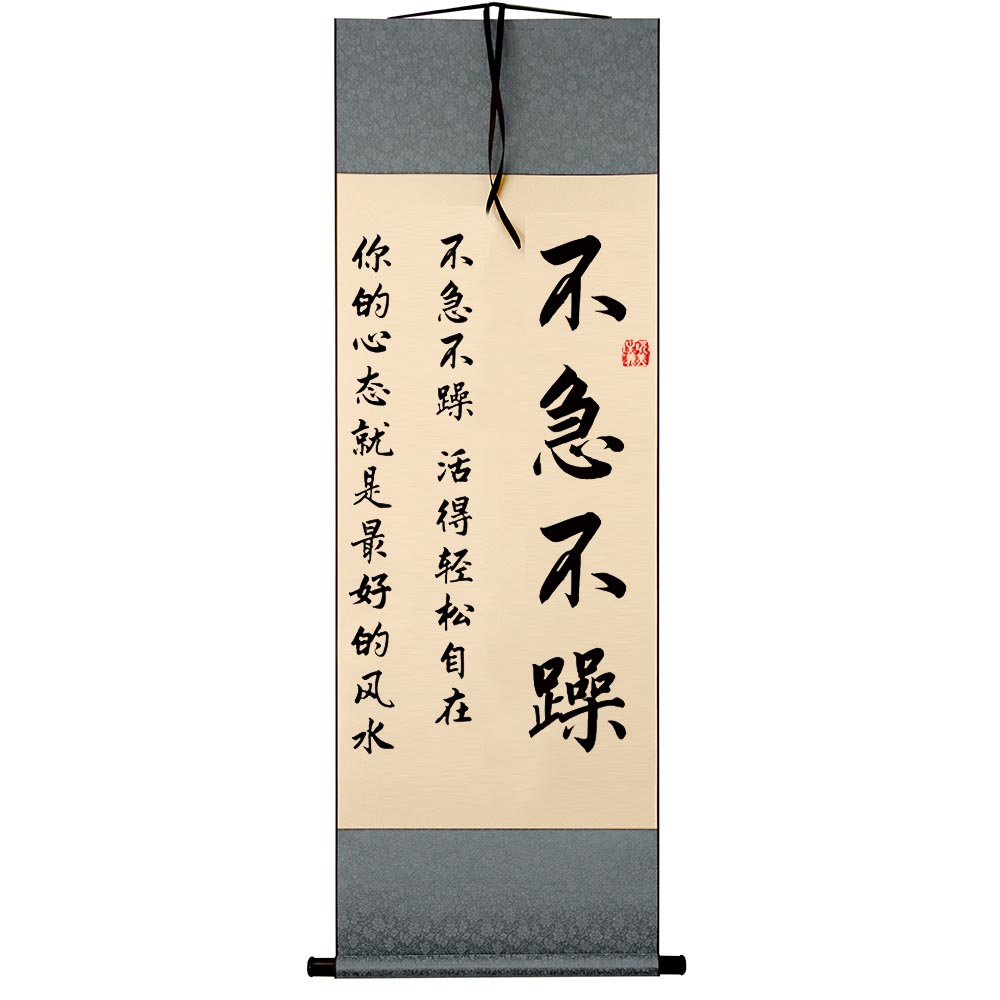 不急不躁
不急不躁 活得轻松自在
你的心态就是最好的风水